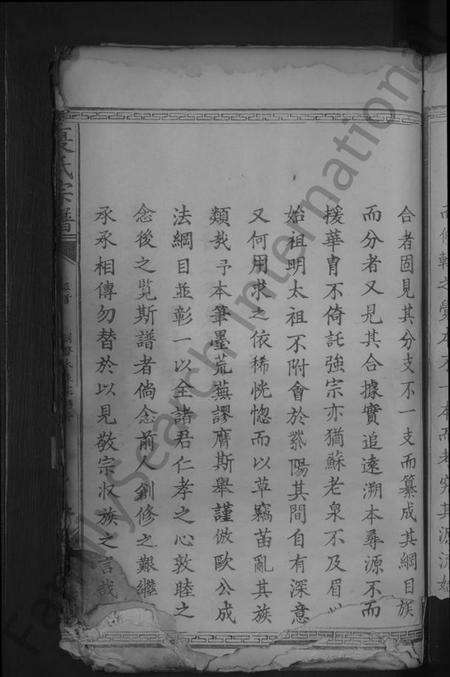 合者固見其分支不一支而纂成其綱目族
而分者又見其合據實追遠溯本尋源不而
援華胄不倚託強宗亦猶蘇老泉不及眉
始祖明太祖不附會於紫陽其間自有深意
又何用求之依稀恍惚而以草竊苗亂其族
類哉予本筆墨荒蕪謬膺斯舉謹倣歐公成
法綱目並彰一以全諸君仁孝之心敦睦之
念後之覽斯譜者倘念前人創修之艱繼
承承相傳勿替於以見敬宗收族之言哉
氏宗譜
FamilySearch International